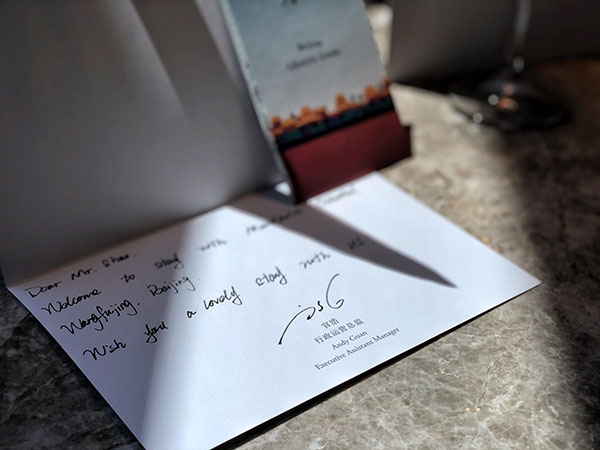 Beijing
Dear Mr. Shao.
Welcome to stay with Mandarin Oriental
Wangfujing. Beijing.
Wish you a lovely stay with us
行政运营总监
Andy Guan
Executive Assistant Manager